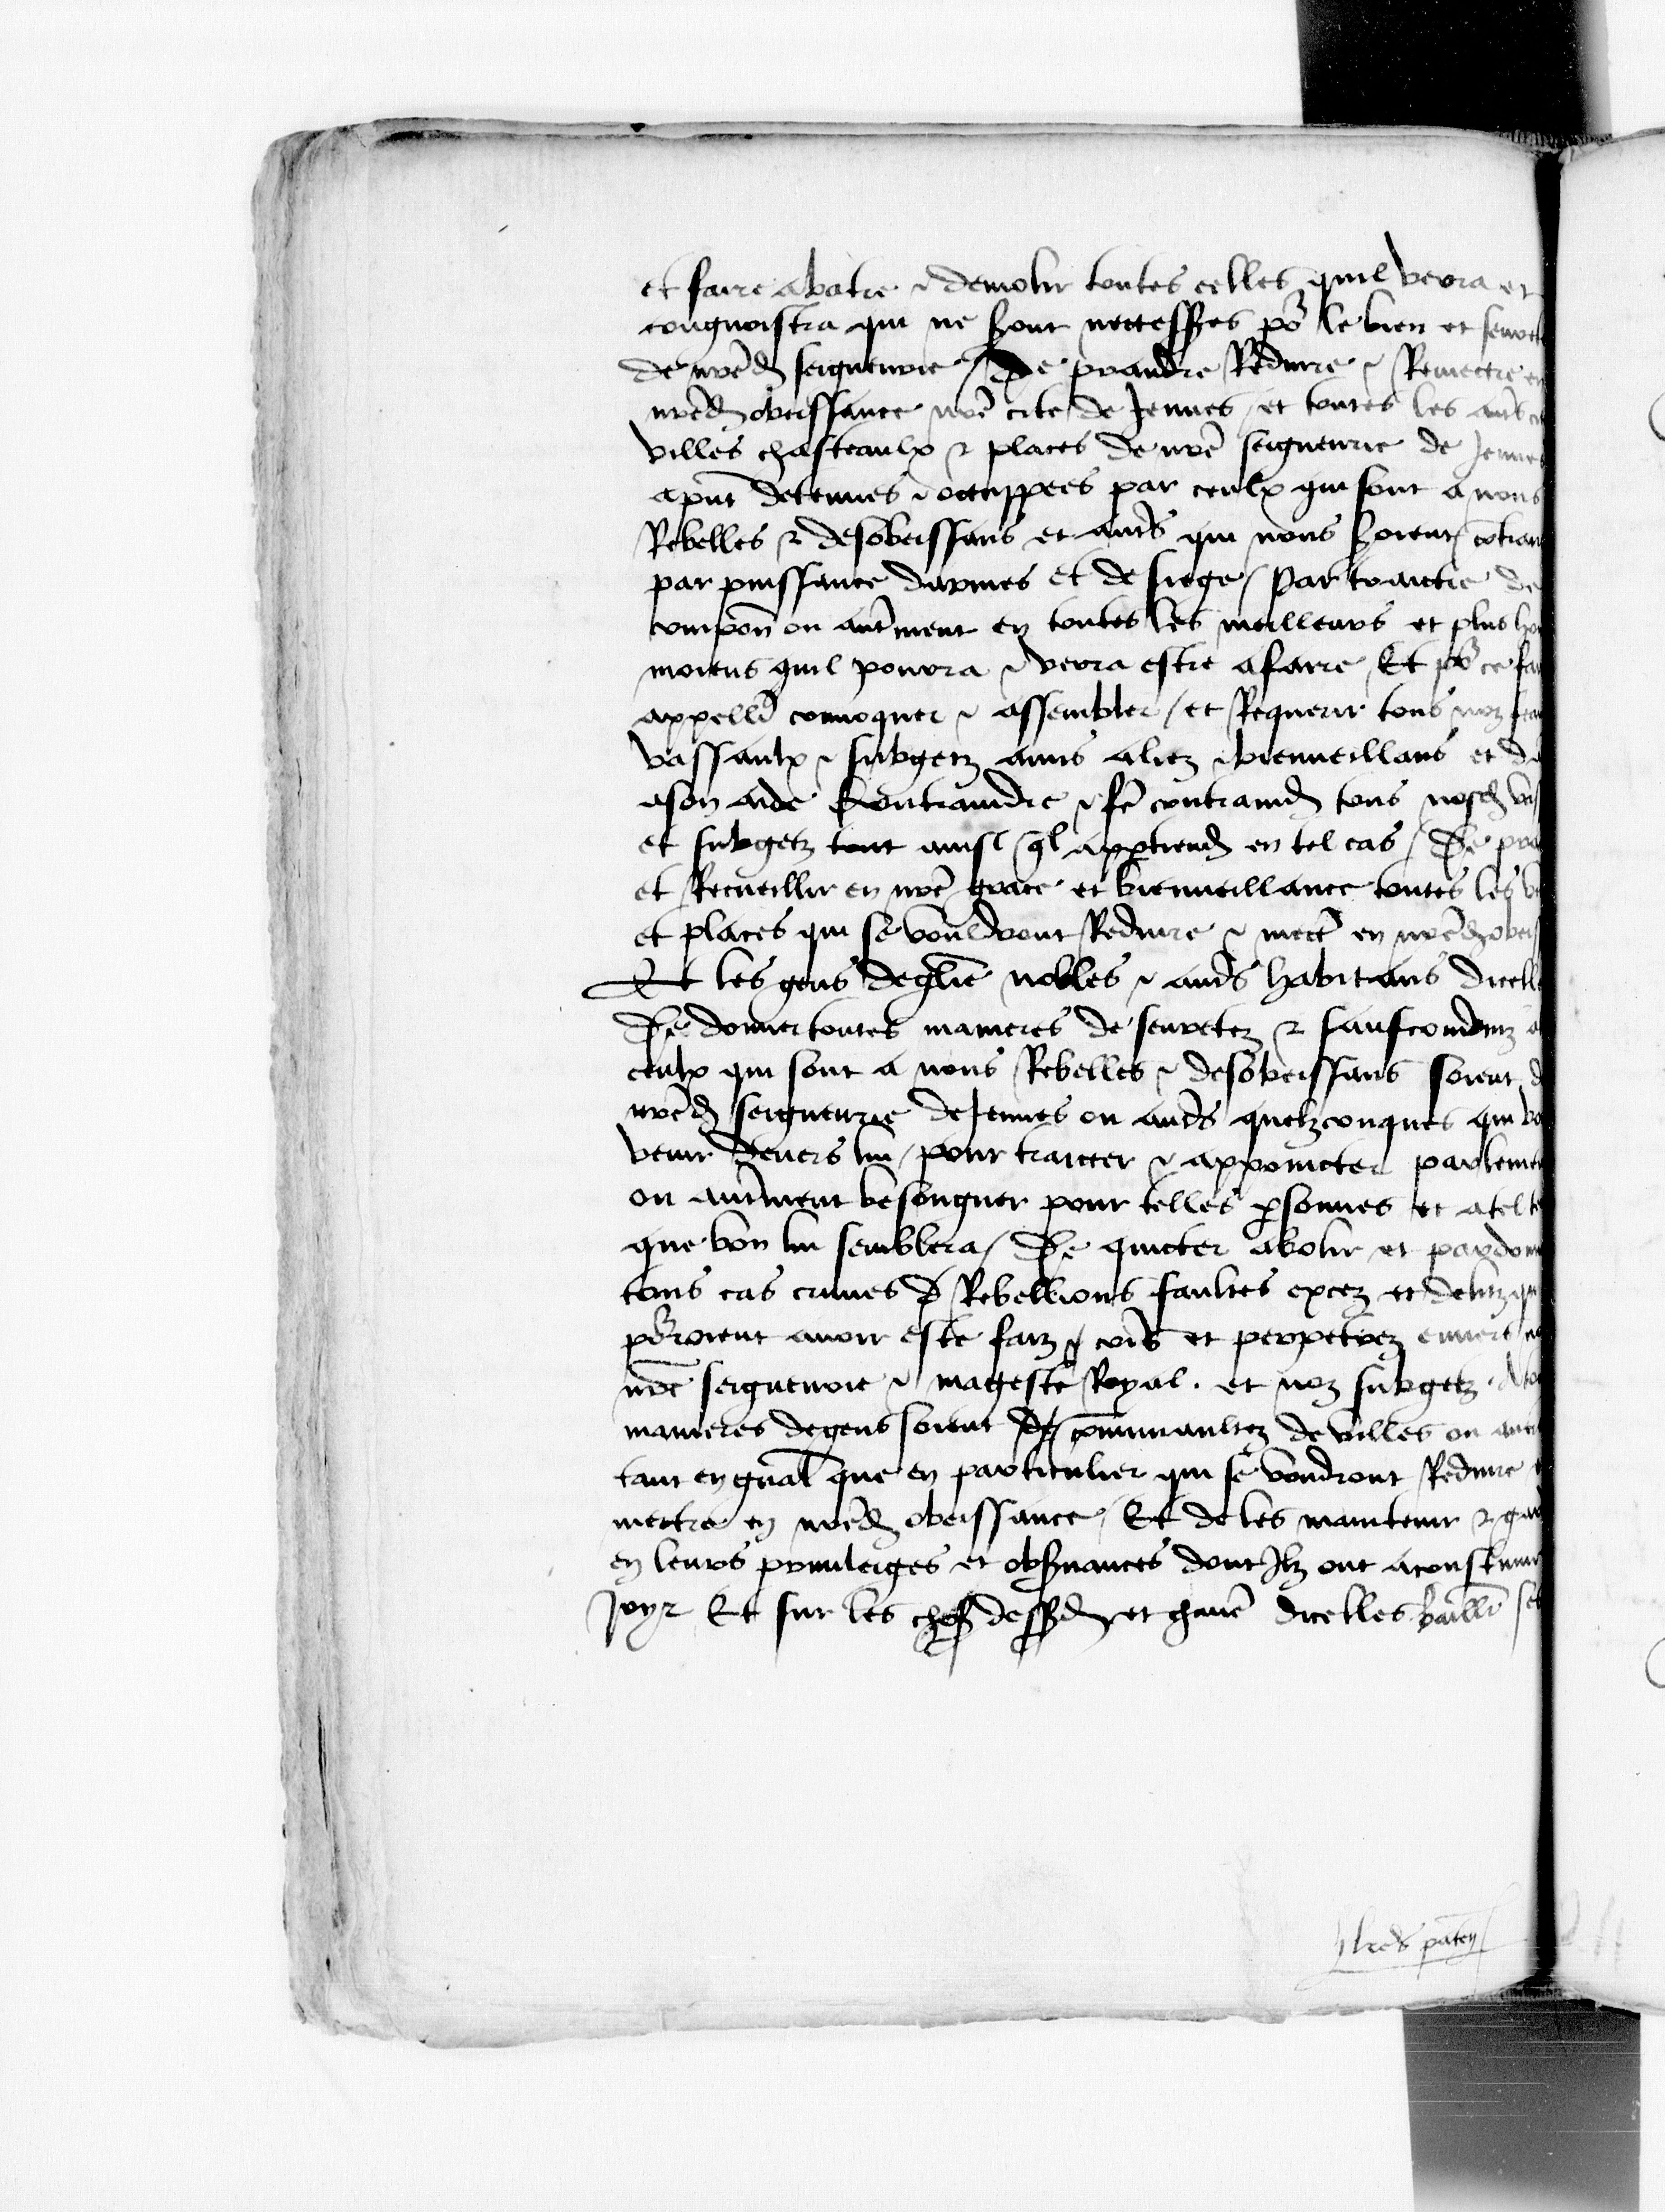 et faire abatre & demolir toutes celles quil verra et
congnoistra qui ne sont necessres por le bien et seuret
de nred seigneurie / De prandre Reduire & Remectre en
nred obeissance nre cite de Jennes / et toutes les aut's
villes chasteaulx & places de nre seigneurie de Jennes
apnt detenues & occuppees par ceulx qui sont a nous
Rebelles & desobeissans et aut's qui nous soient contrair
par puissance darmes et de siege / Par traictie de
compon ou autment en toutes les meilleurs et plus hon
moiens quil pourra & verra estre afaire Et por ce fai
appelle convoquer & assembler / et Requerir tous noz feau
vassaulx & subgetz amis aliez & bienveillans et de
ason aide Contraindre & fe contraind tous nosd
et subgetz tout ainsi ql appartiend en tel cas / De pra
et Recueillir en nre grace et bienveillance toutes les v
et places qui se vouldront Reduire & mect en nred obeis
Et les gens deglie nobles & aut's habitans dicell
De donner toutes manieres de seuretez & saufconduiz a
ceulx qui sont a nous Rebelles & desobeissans soient d
nred seigneurie de Jennes ou aut's quelzconques qui vo
venir devers lui / pour traicter & appoincter parlemen
ou autment besongner pour telles psonnes et atel te
que bon lui semblera / De quicter abolir et pardonn
tous cas crimes Rebellions faultes excez et delitz qui
porroient avoir este faiz & et perpetrez envers no
nre seigneurie & mageste Royal . et noz subgetz . A tou
manieres degens soient communaultez de villes ou aut
tant en gnal que en particulier qui se voudront Reduire
mectre en nred obeissance / Et de les maintenir & gar
en leurs privileiges et obsvances dont Ilz ont acoustume
Joyr Et sur les choses dessd et chune dicelles baille se
lres paten